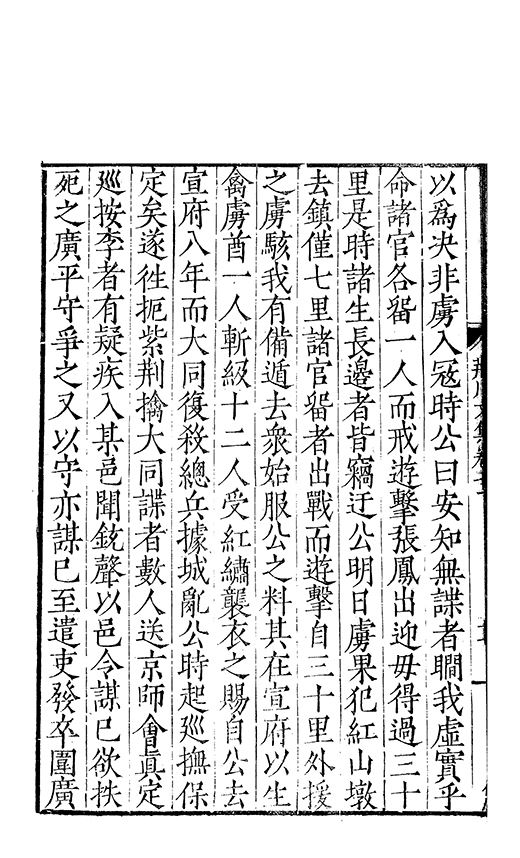 以爲决非虜入冦時公曰安知無諜者瞯我虛實乎
命諸官各畱一人而戒遊擊張鳳出迎毋得過三十
里是時諸生長邊者皆竊迂公明日虜果犯紅山墩
去鎮僅七里諸官畱者出戰而遊擊自三十里外援
之虜駭我有備遁去衆始服公之料其在宣府以生
禽虜酋一人斬級十二人受紅繡襲衣之賜自公去
宣府八年而大同復殺總兵據城亂公時起廵撫保
定矣遂徃扼紫荆擒大同諜者數人送京師會眞定
廵按李者有疑疾入某邑聞銃聲以邑令謀已欲抶
死之廣平守爭之又以守亦謀已至遣吏發卒圍廣